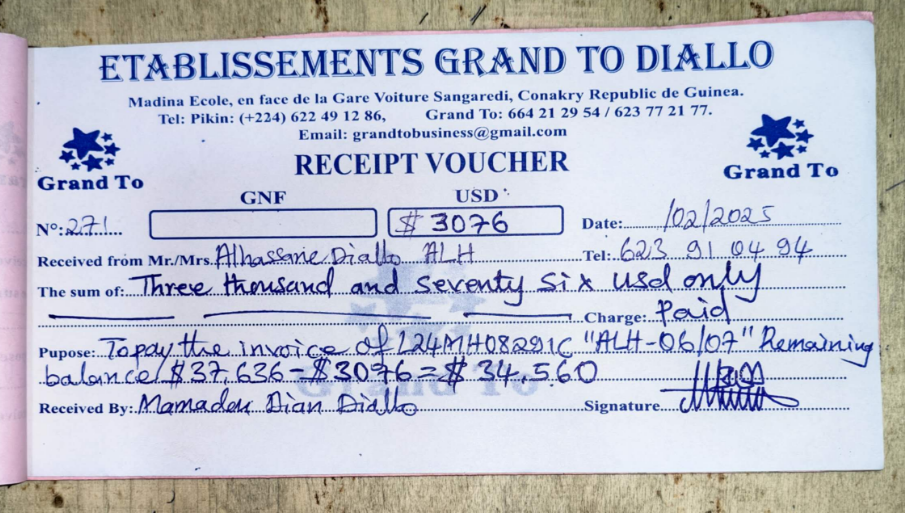 ETABLISSEMENTS GRAND TO DIALLO
Madina Ecole, en face de la Gare Voiture Sangaredi, Conakry Republic de Guinea.
Tel: Pikin: (+224) 622 49 12 86, Grand To: 664 21 29 54 / 623 77 21 77.
Email: grandtobusiness@gmail.com
Grand To
RECEIPT VOUCHER
Grand To
GNF USD
N°: 271 $ 3076 Date: /02/2025
Received from Mr./Mrs. Alhassane Diallo ALH Tel: 623 91 04 94
The sum of: Three thousand and seventy six usd only
Charge: Paid
Pupose: To pay the invoice of L24MH08291C "ALH-06/07" Remaining
balance $37,636 - $3076 = $ 34,560
Received By: Mamadou Dian Diallo Signature